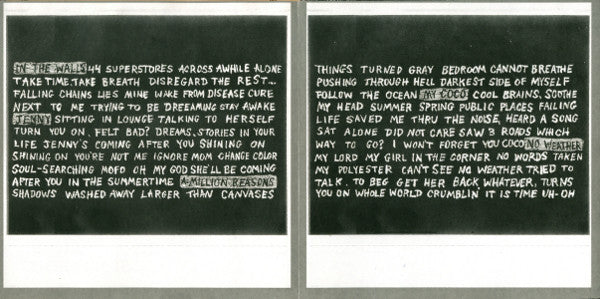 IN THE WALLS 44 SUPERSTORES ACROSS AWHILE ALONE
TAKE TIME, TAKE BREATH DISREGARD THE REST~
FALLING CHAINS LIES MINE WAKE FROM DISEASE CURE
NEXT TO ME TRYING TO BE DREEAMING STAY AWAKE
JENNY SITTING IN LOUNGE TALKING TO HERSELF
TURN YOU ON, FELT BAD? DREAMS, STORIES IN YOUR
LIFE JENNY'S COMING AFTER YOU SHINING ON
SHINING ON YOU'RE NOT ME IGNORE MOM CHANGE COLOR
SOUL-SEARCHING MOFO OH MY GOD SHE'LL BE COMING
AFTER YOU IN THE SUMMERTIME A MILLION REASONS
SHADOWS WASHED AWAY LARGER THAN CANVASES
THINGS TURNED GRAY BEDROOM CANNOT BREATHE
PUSHING THROUGH HELL DARKEST SIDE OF MYSELF
FOLLOW THE OCEAN MY COCO COOL BRAINS, SOOTHE
MY HEAD SUMMER SPRING PUBLIC PLACES FALLING
LIFE SAVED ME THRU THE NOISE, HEARD A SONG
SAT ALONE DID NOT CARE SAW 3 ROADS WHICH
WAY TO GO? I WON'T FORGET YOU COCO NO WEATHER
MY LORD MY GIRL IN THE CORNER NO WORDS TAKEN
MY POLYESTER CAN'T SEE NO WEATHER TRIED TO
TALK. TO BEG GET HER BACK WHATEVER, TURNS
YOU ON WHOLE WORLD CRUMBLIN IT IS TIME UH-OH